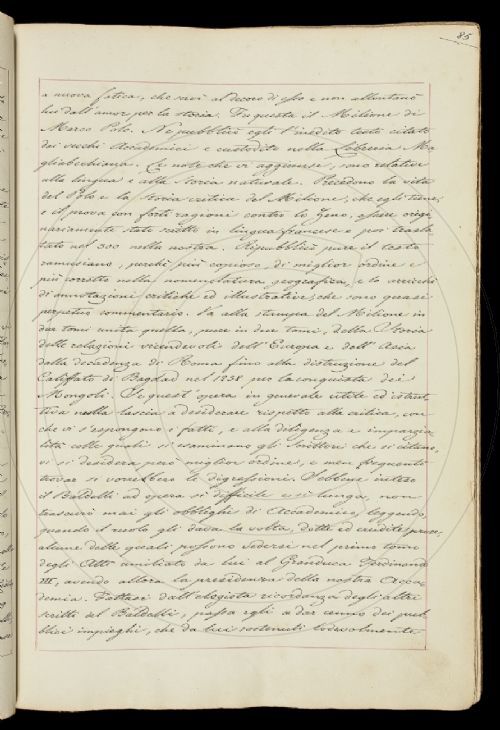 85
a nuova fatica, che servì al decoro di esso e non allontanò
lui dall'amor per la storia. Fu questa il Milione di
Marco Polo. Ne pubblicò egli l'inedito testo citato
dai vecchi Accademici e custodito nella Libreria Ma
gliabechiana. Le note che vi aggiunse, sono relative
alla lingua e alla storia naturale. Precedono la vita
del Polo e la Storia critica del Milione, che egli tiene,
e il prova con forti ragioni contro lo Zeno, essere origi
nariamente stato scritto in lingua francese e poi trasla
tato nel 300 nella nostra. Ripubblicò pure il testo
ramusiano, perchè più copioso, di miglior ordine e
più corretto nella nomenclatura geografica, e lo arricchì
di annotazioni critiche ed illustrative, che sono quasi
perpetuo commentario. Va alla stampa del Milione in
due tomi unita quella, pure in due tomi, della Storia
delle relazioni vicendevoli dell'Europa e dell'Asia
dalla decadenza di Roma fino alla distruzione del
Califfato di Bagdad nel 1258 per la conquista dei
Mongoli. Se quest'opera in generale utile ed istrut
tiva nulla lascia a desiderare rispetto alla critica, con
che vi s'espongono i fatti, e alla diligenza e imparzia
lità colle quali si esaminano gli Scrittori che si citano,
vi si desidera però miglior ordine, e men frequenti
trovar si vorrebbero le digressioni. Sebbene inteso
il Baldelli ad opera sì difficile e sì lunga, non
trascurò mai gli obblighi di Accademico, leggendo,
quando il ruolo gli dava la volta, dotte ed erudite prose,
alcune delle quali possono vedersi nel primo tomo
degli Atti umiliato da lui al Granduca Ferdinando
III, avendo allora la presidenza della nostra Acca
demia. Fattasi dall'elogista ricordanza degli altri
scritti del Baldelli, passa egli a dar cenno dei pub
blici impieghi, che da lui sostenuti lodevolmente